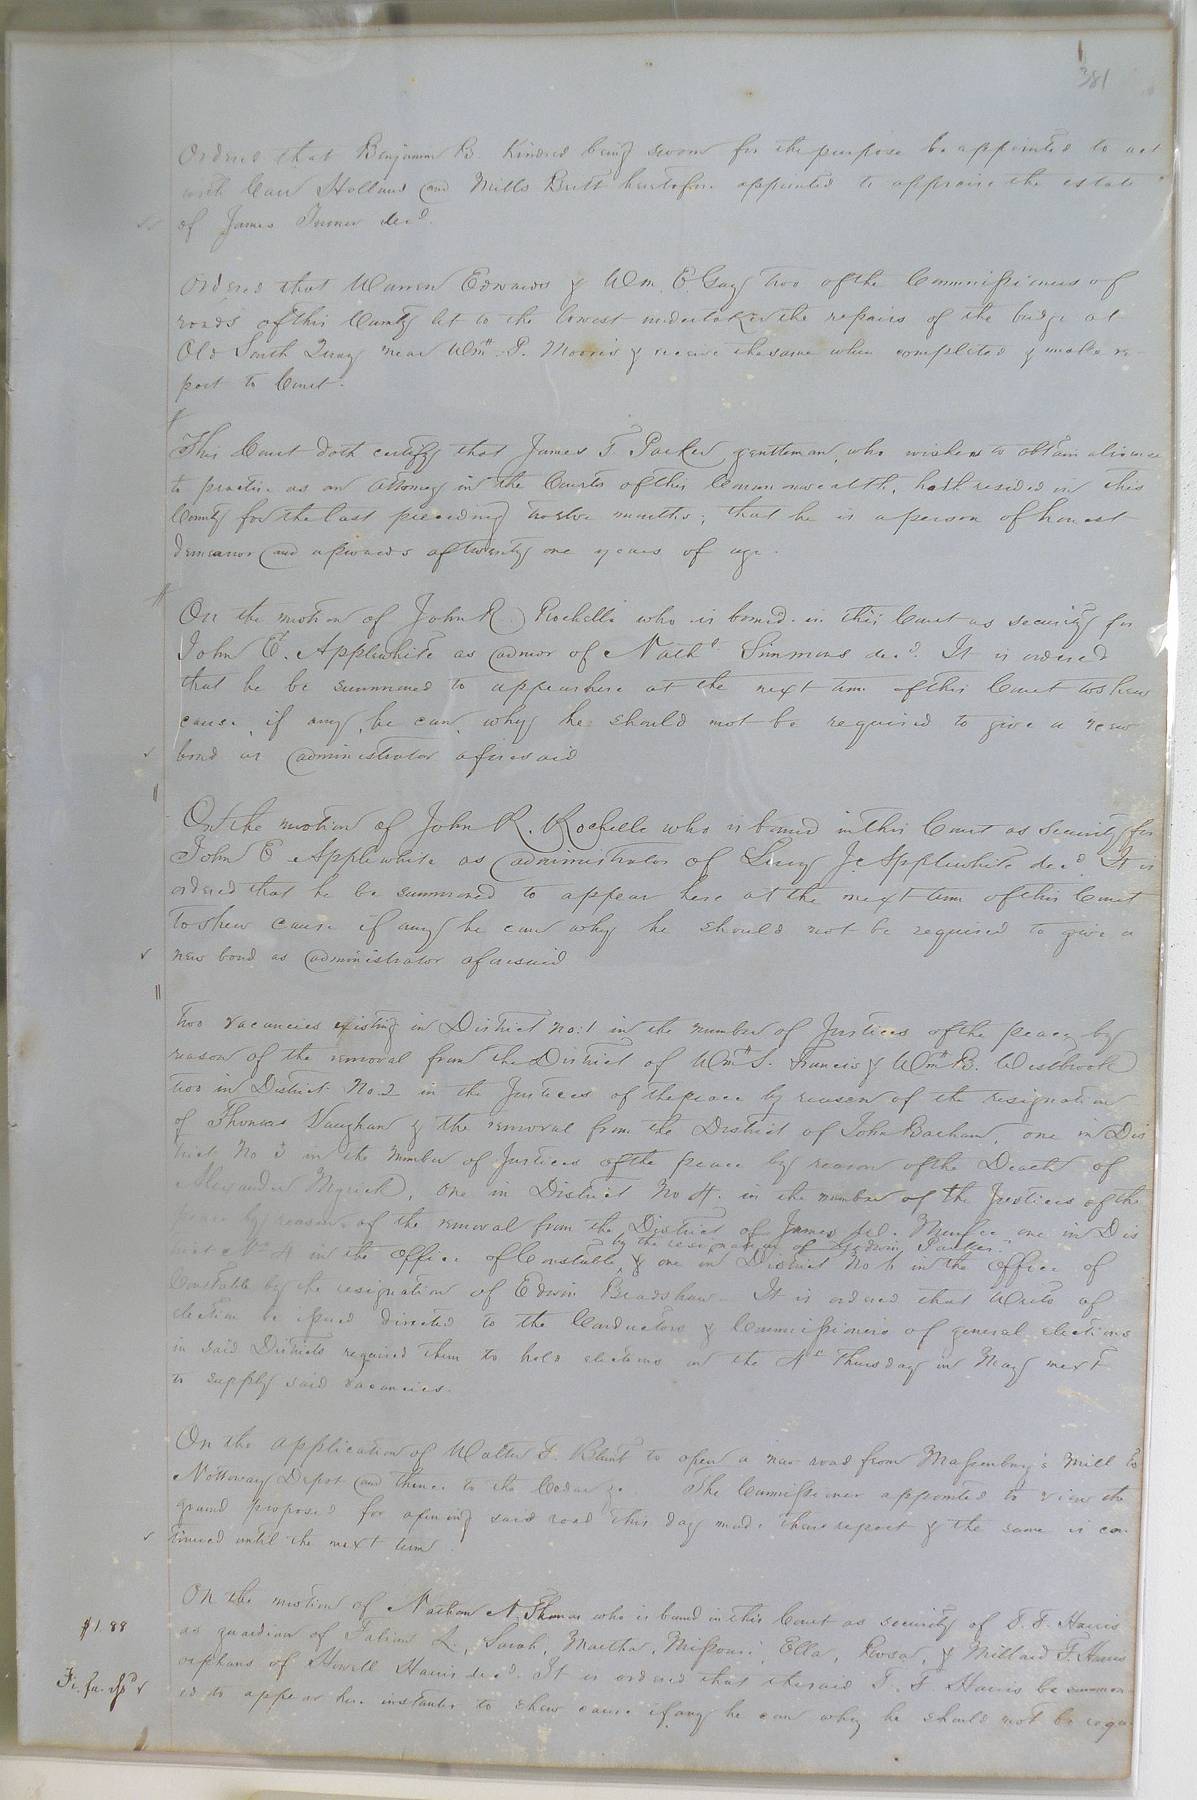 381
Ordered that Benjamin B. Kindred being sworn for the purpose be appointed to act
with Carr Holland and Mills Britt heretofore appointed to appraise the estate
of James Turner decd.
Ordered that Warren Edwards & Wm. E. Gay two of the Commissioners of
roads of this County let to the lowest undertaker the repairs of the bridge at
Old South Quay near Wm. P. Morris & receive the same when completed & make re-
port to Court.
This Court doth certify that James T Parker, gentleman, who wishes to obtain a license
to practice as an attorney in the Courts of this Commonwealth, hath resided in this
County for the last preceeding twelve months; that he is a person of honest
demeanor and upwards of twenty one years of age.
On the motion of John R. Rochelle who is bound in this Court as security for
John E. Applewhite as admor of Nathl Simmons decd. It is ordered
that he be summoned to appear here at the next term of this Court to shew
cause, if any he can, why he should not be required to give a new
bond as administrator aforesaid
On the motion of John R. Rochelle who is bound in this Court as Security for
John E Applewhite as administrator of Lucy J. Applewhite decd. It is
ordered that he be summoned to appear here at the next term of this Court
to shew cause if any he can why he should not be required to give a
new bond as administrator aforesaid
two vacancies existing in District no: 1 in the number of Justices of the peace by
reason of the removal from the District of Wm S. Francis & Wm B. Westbrook
two in District No. 2 in the Justices of the peace by reason of the resignation
of Thomas Vaughan & the removal from the District of John Barham, one in Dis
trict No 3 in the number of Justices of the peace by reason of the Death of
Alexander Myrick, one in District No 4. in the number of the Justices of the
peace by reason of the removal from the District of James M. Murfee one in Dis
by the resignation of Parker.
trict No 4 in the Office of Constable, & one in District No 6 in the Office of
Constable by the resignation of Edwin Bradshaw. It is ordered that Writs of
election be issued directed to the Conductors & Commissioners of general elections
in said Districts required them to hold elections on the 4th Thursday in May next
to supply said vacancies.
On the application of Walter F. Blunt to open a new road from Massenburg's Mill to
Nottoway Depot and thence to the The Commissioner appointed to view the
ground proposed for opening said road this day made there report & the same is con
tinued until the next term.
$1.88
On the motion of Nathan N. Thomas who is bound in this Court as security of T. F. Harris
as guardian of L., Sarah, Martha, Missouri, Ella, Rosa, & Millard F. Harris
Fi. fa.
orphans of Howell Harris decd. It is ordered that the said T. F Harris be summon
ed to appear here instanter to shew cause if any he can why he should not be requi